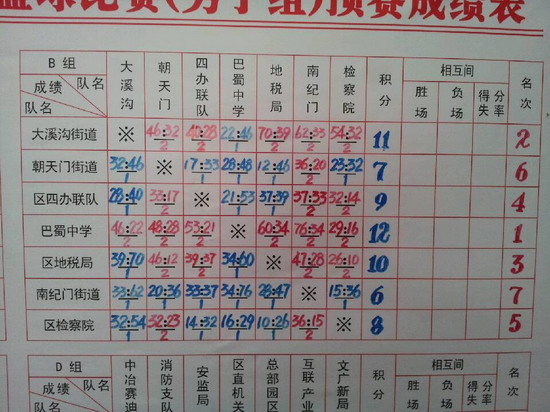 篮球比赛(男子组)预赛成绩表
B组 成绩 队名 队名 大溪沟 朝天门 四办联队 巴蜀中学 地税局 南纪门 检察院 积分 相互间 胜场 负场 得失分率 名次
大溪沟街道 ※ 46:32 40:28 22:46 70:39 62:33 54:32 11 2
2 2 1 2 2 2
朝天门街道 32:46 ※ 17:33 28:48 12:46 36:20 23:32 7 6
1 1 1 1 2 1
区四办联队 28:40 33:17 ※ 21:53 37:39 37:33 32:14 9 4
1 2 1 1 2 2
巴蜀中学 46:22 48:28 53:21 ※ 60:34 76:34 29:16 12 1
2 2 2 2 2 2
区地税局 39:70 46:12 39:37 34:60 ※ 47:28 26:10 10 3
1 2 2 1 2 2
南纪门街道 33:62 20:36 33:37 34:76 28:47 ※ 15:36 6 7
1 1 1 1 1 1
区检察院 32:54 32:23 14:32 16:29 10:26 36:15 ※ 8 5
1 2 1 1 1 2
D组 成绩 队名 中冶赛迪 消防支队 安监局 区直机关 总部园区 互联产业 文广新局 积分 相互间 胜场 负场 得失分率 名次